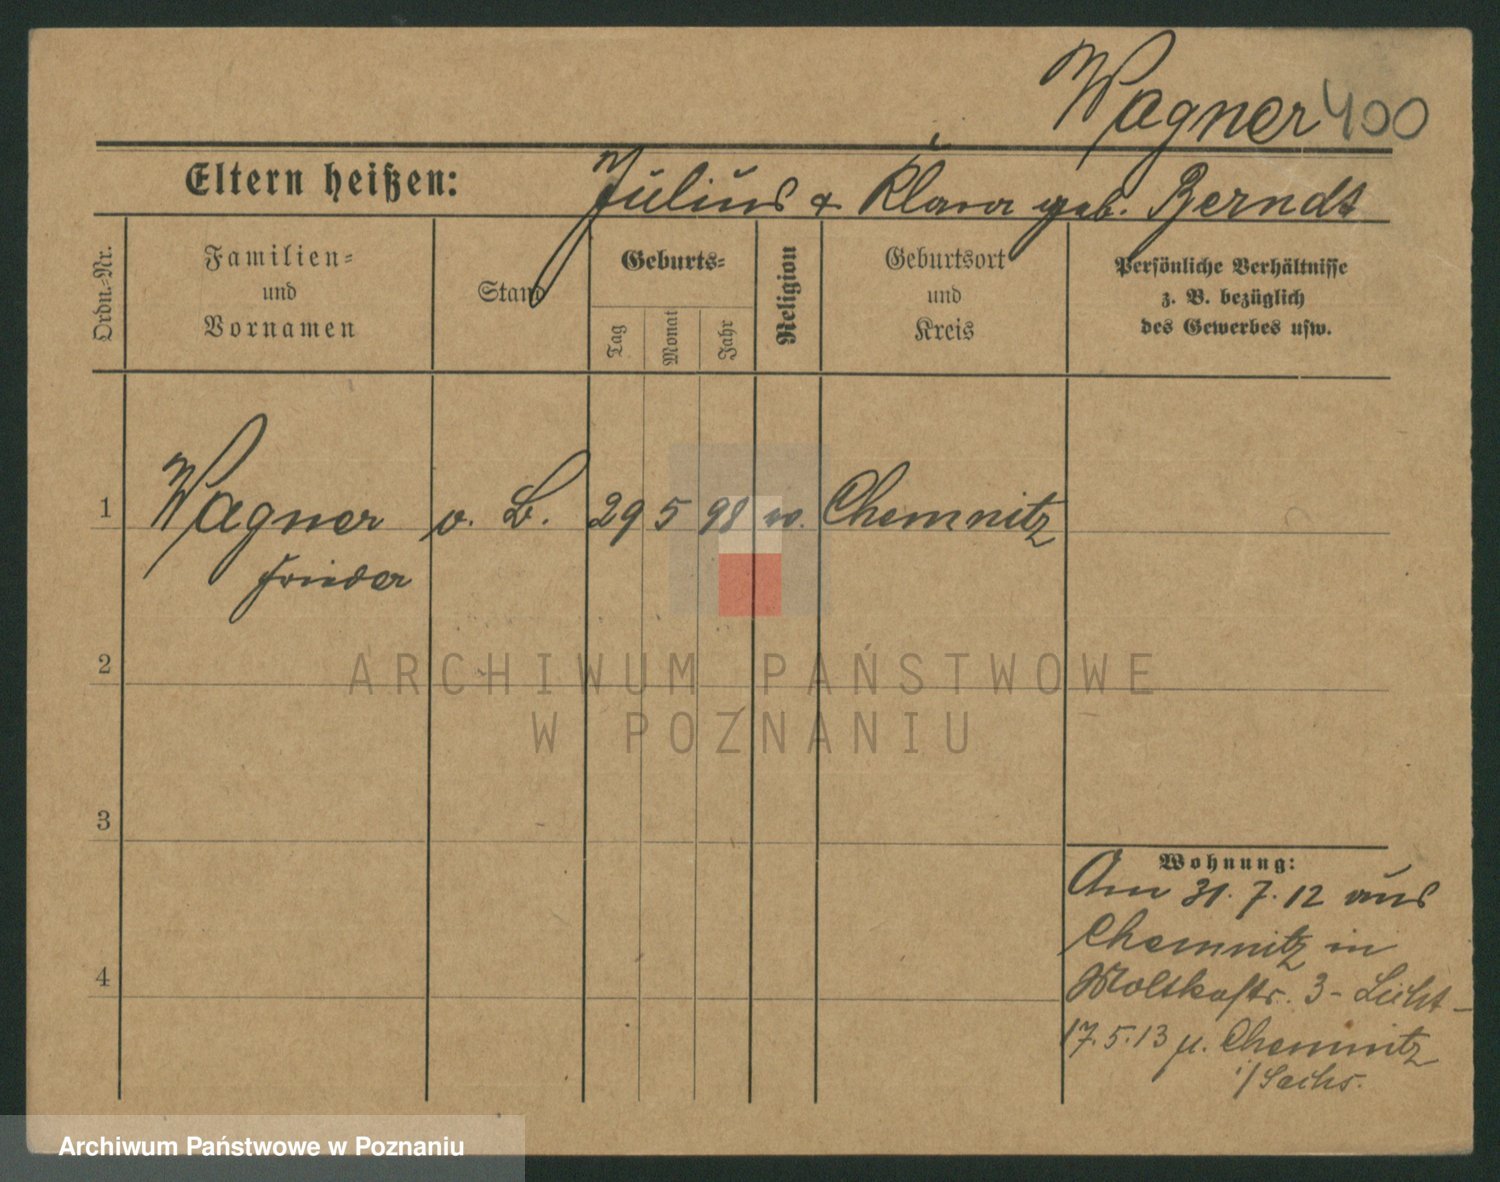 Wagner 400
Eltern heißen: Julius & Klara geb. Berndt
Ordn.-Nr.
Familien-
und
Vornamen
Stand
Geburts-
Tag
Monat
Jahr
Religion
Geburtsort
und
Kreis
Persönliche Verhältnisse
z. B. bezüglich
des Gewerbes usw.
1 Wagner o. B. 29 5 98 Chemnitz
2
3
4
Wohnung:
Am 31.7.12 aus
Chemnitz in
Moltkestr. 3 -
17.5.13 n. Chemnitz
i/Sachs.
ARCHIWUM PAŃSTWOWE
W POZNANIU
Archiwum Państwowe w Poznaniu